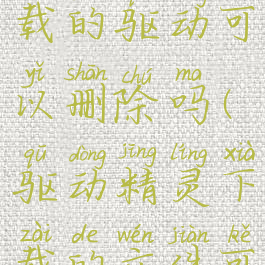 载的驱动可
yǐ shān chú ma
以删除吗(
qū dòng jīng líng xià
驱动精灵下
zài de wén jiàn kě
载的文件可